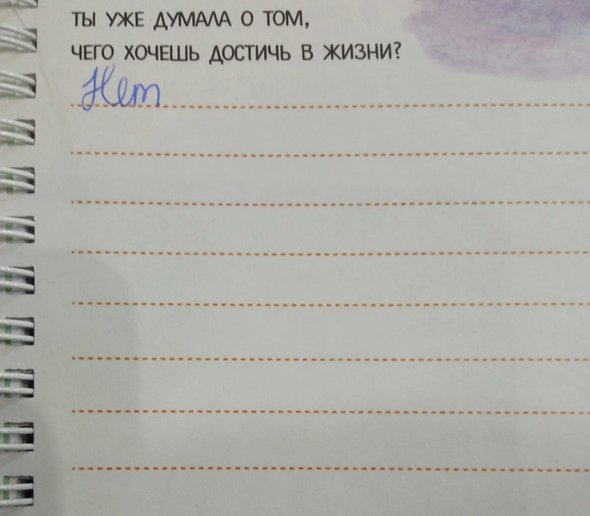 ТЫ УЖЕ ДУМАЛА О ТОМ,
ЧЕГО ХОЧЕШЬ ДОСТИЧЬ В ЖИЗНИ?
Нет